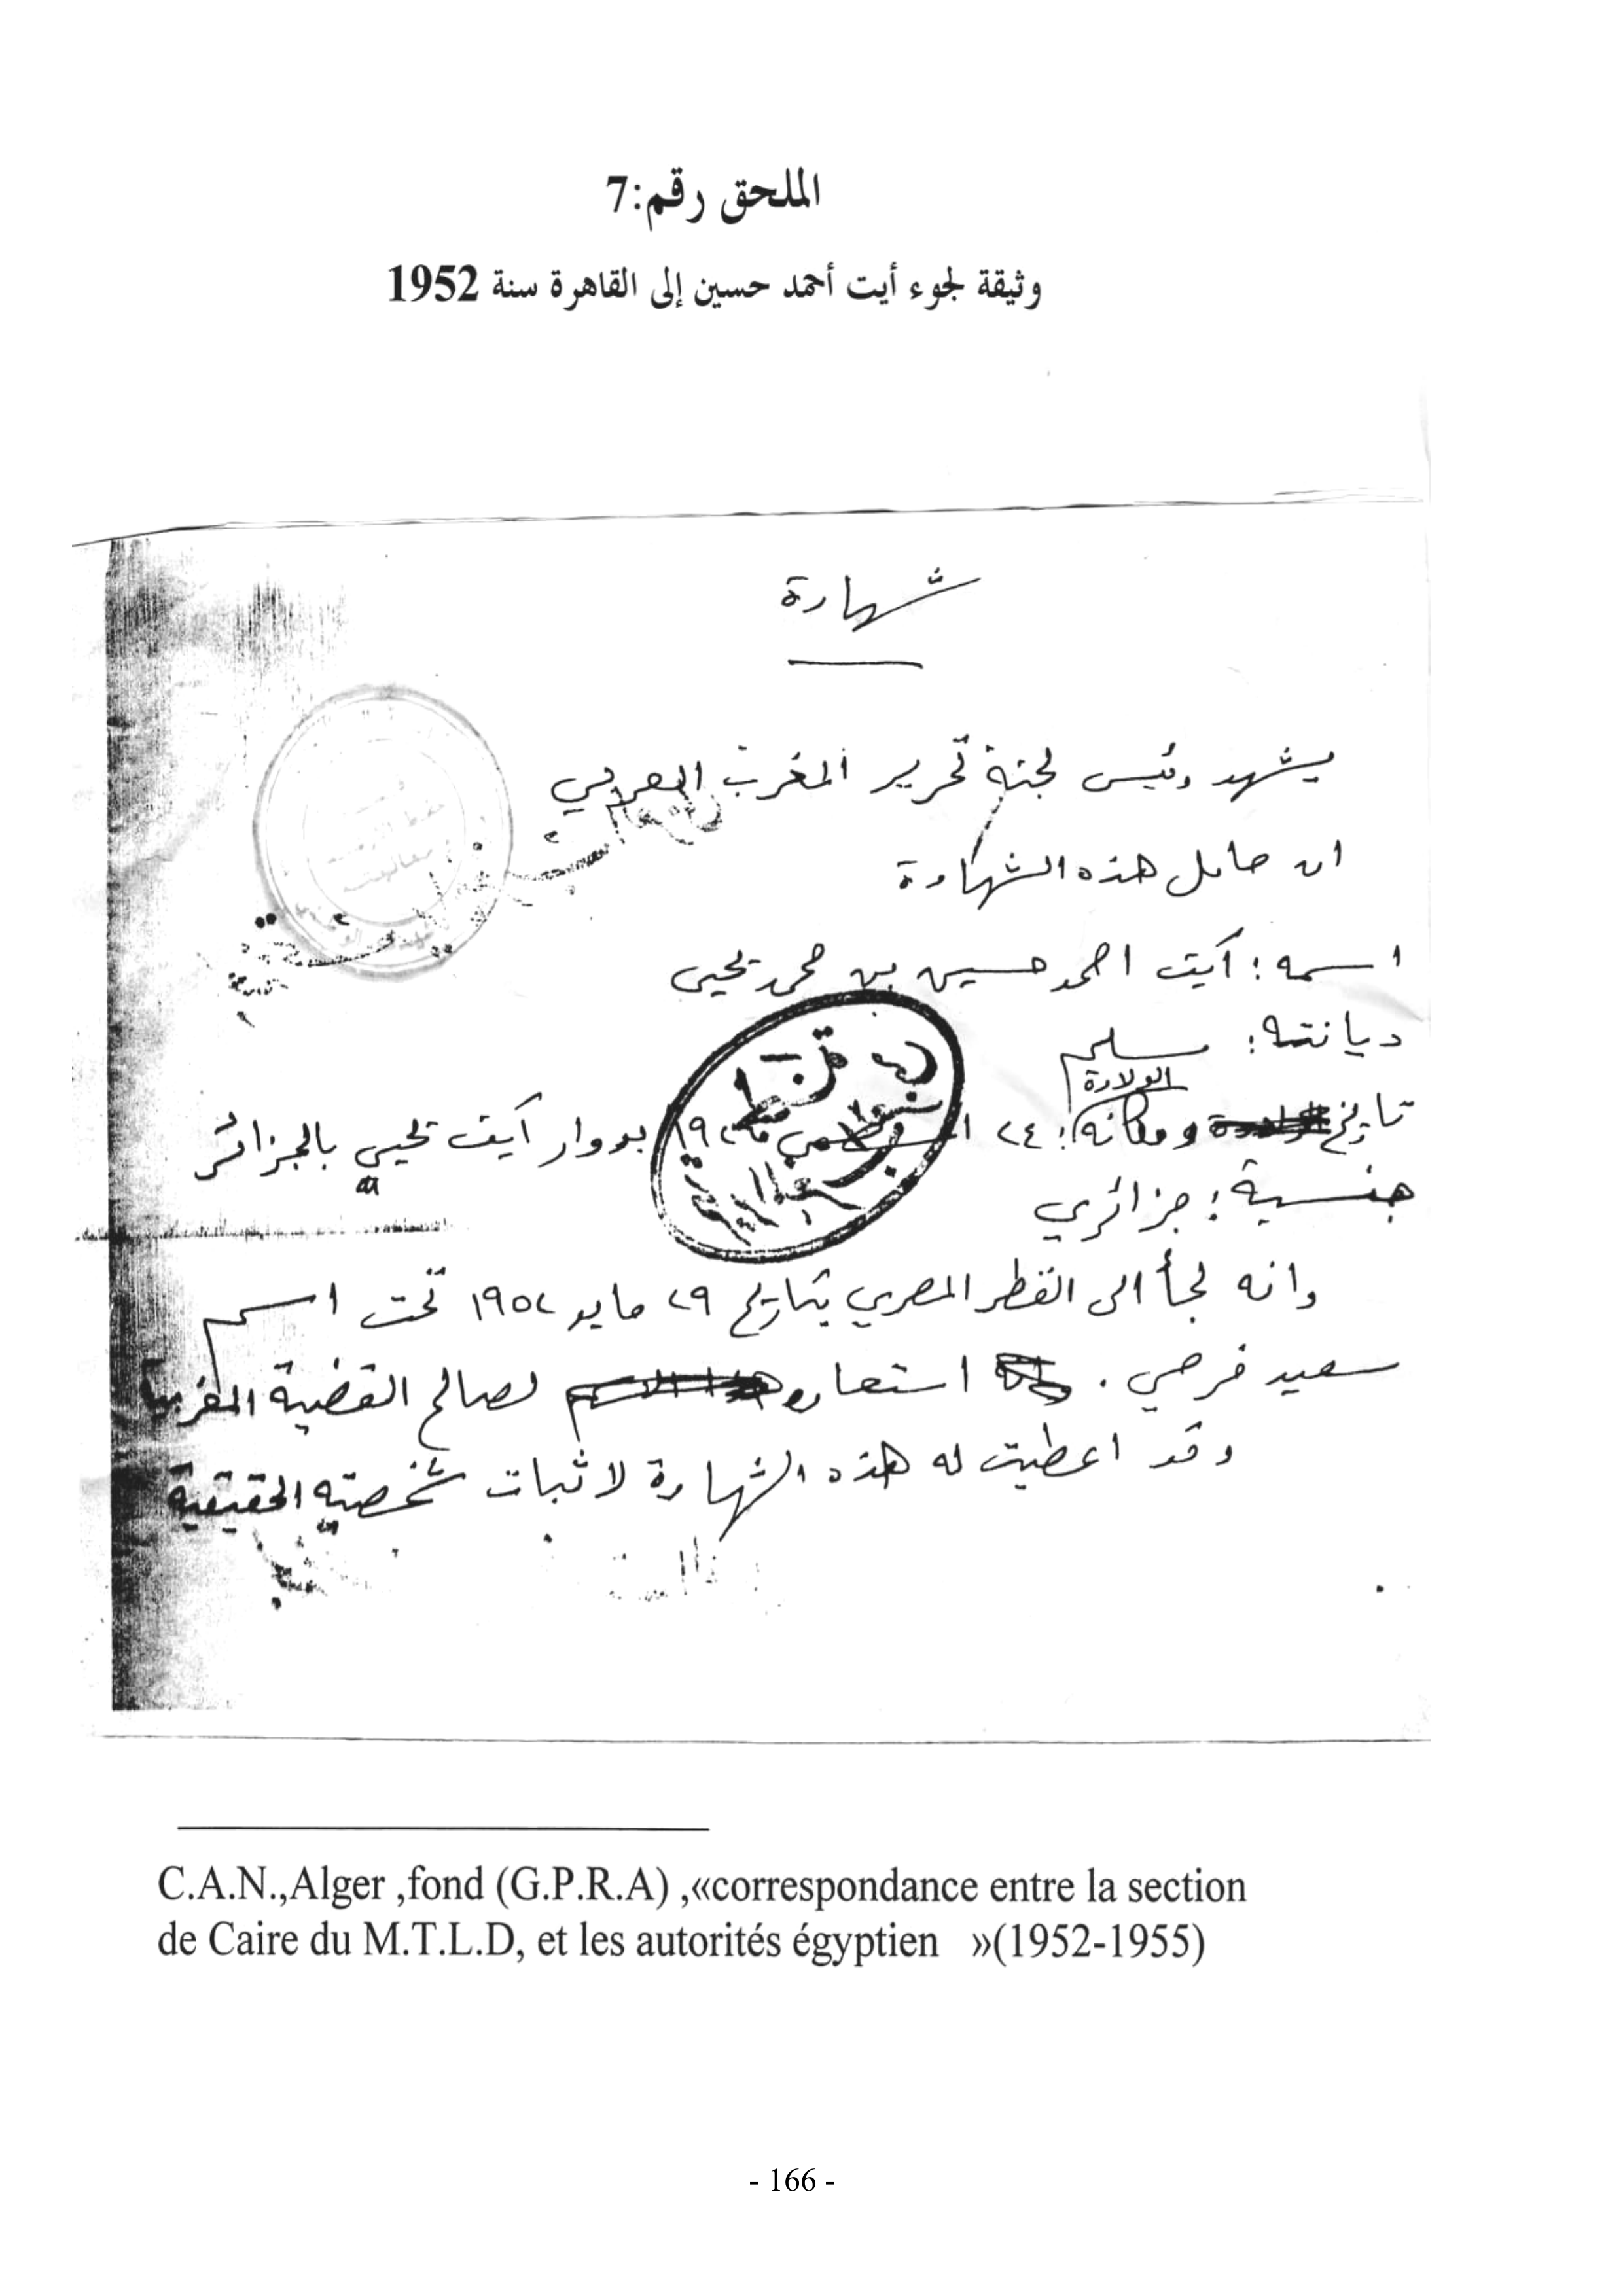 الملحق رقم:7
وثيقة لجوء أيت أحمد حسين إلى القاهرة سنة 1952
شهادة
يشهد رئيس لجنة تحرير المغرب العربي
ان حامل هذه الشهادة
اسمه : آيت احمد حسين بن محمد يحيى
ديانته : مسلم
الولادة
تاريخ ومكانه : ٢٤ بدوار آيت يحيى بالجزائر
جنسية : جزائري
وانه لجأ الى القطر المصري بتاريخ ٢٩ مايو ١٩٥٢ تحت اسم
سعيد فرحي . استعاره لصالح القضية المغربية
وقد اعطيت له هذه الشهادة لاثبات شخصيته الحقيقية
C.A.N.,Alger ,fond (G.P.R.A) ,«correspondance entre la section
de Caire du M.T.L.D, et les autorités égyptien »(1952-1955)
- 166 -